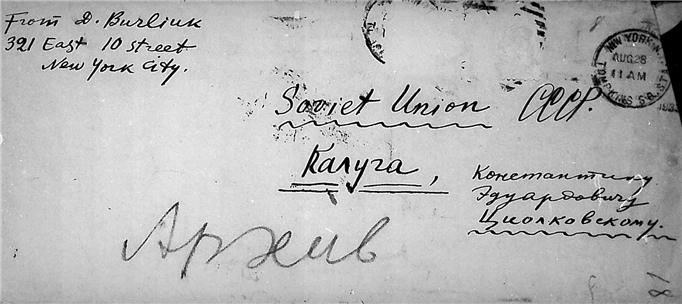 From D. Burliuk
321 East 10 street
New York City.
NEW YORK, N.Y.
AUG 28
11 AM
TOMPKINS SQ. STA.
Soviet Union СССР.
Калуга,
Константину
Эдуардовичу
Циолковскому.
Архив
81